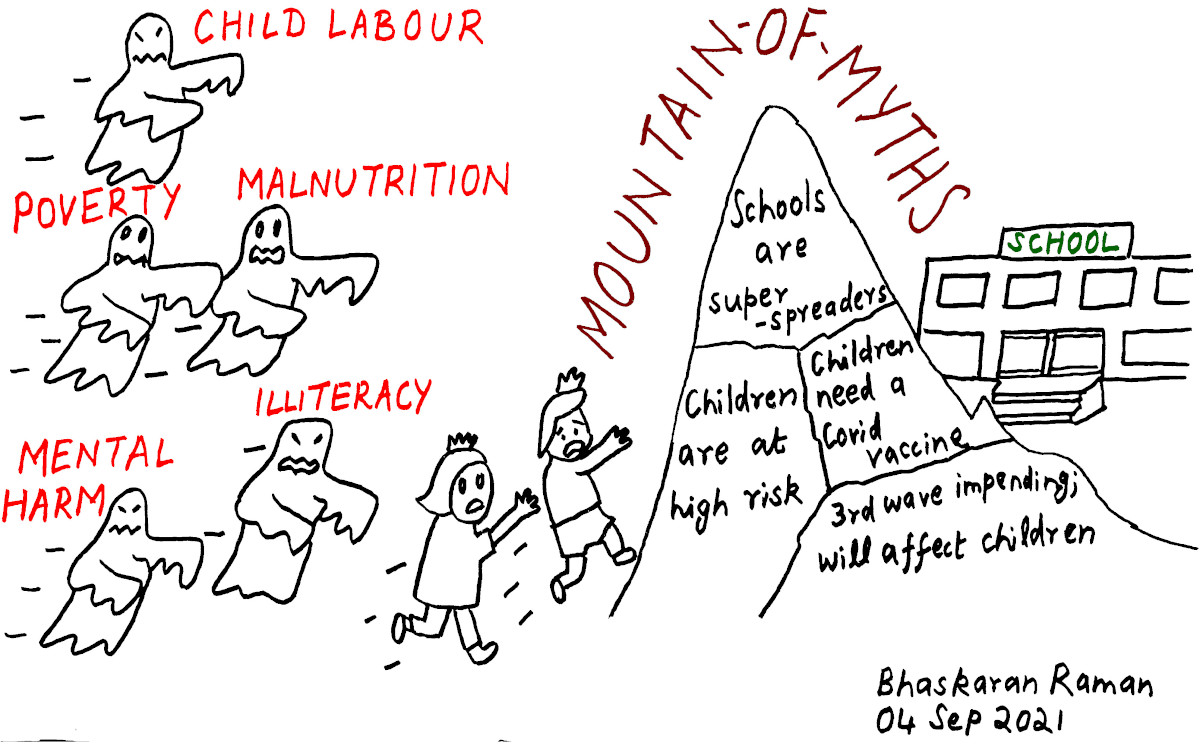 CHILD LABOUR
POVERTY
MALNUTRITION
MENTAL
HARM
ILLITERACY
MOUNTAIN-OF-MYTHS
Schools
are
super
-spreaders
Children
are at
high risk
Children
need a
Covid
vaccine
3rd wave impending;
will affect children
SCHOOL
Bhaskaran Raman
04 Sep 2021